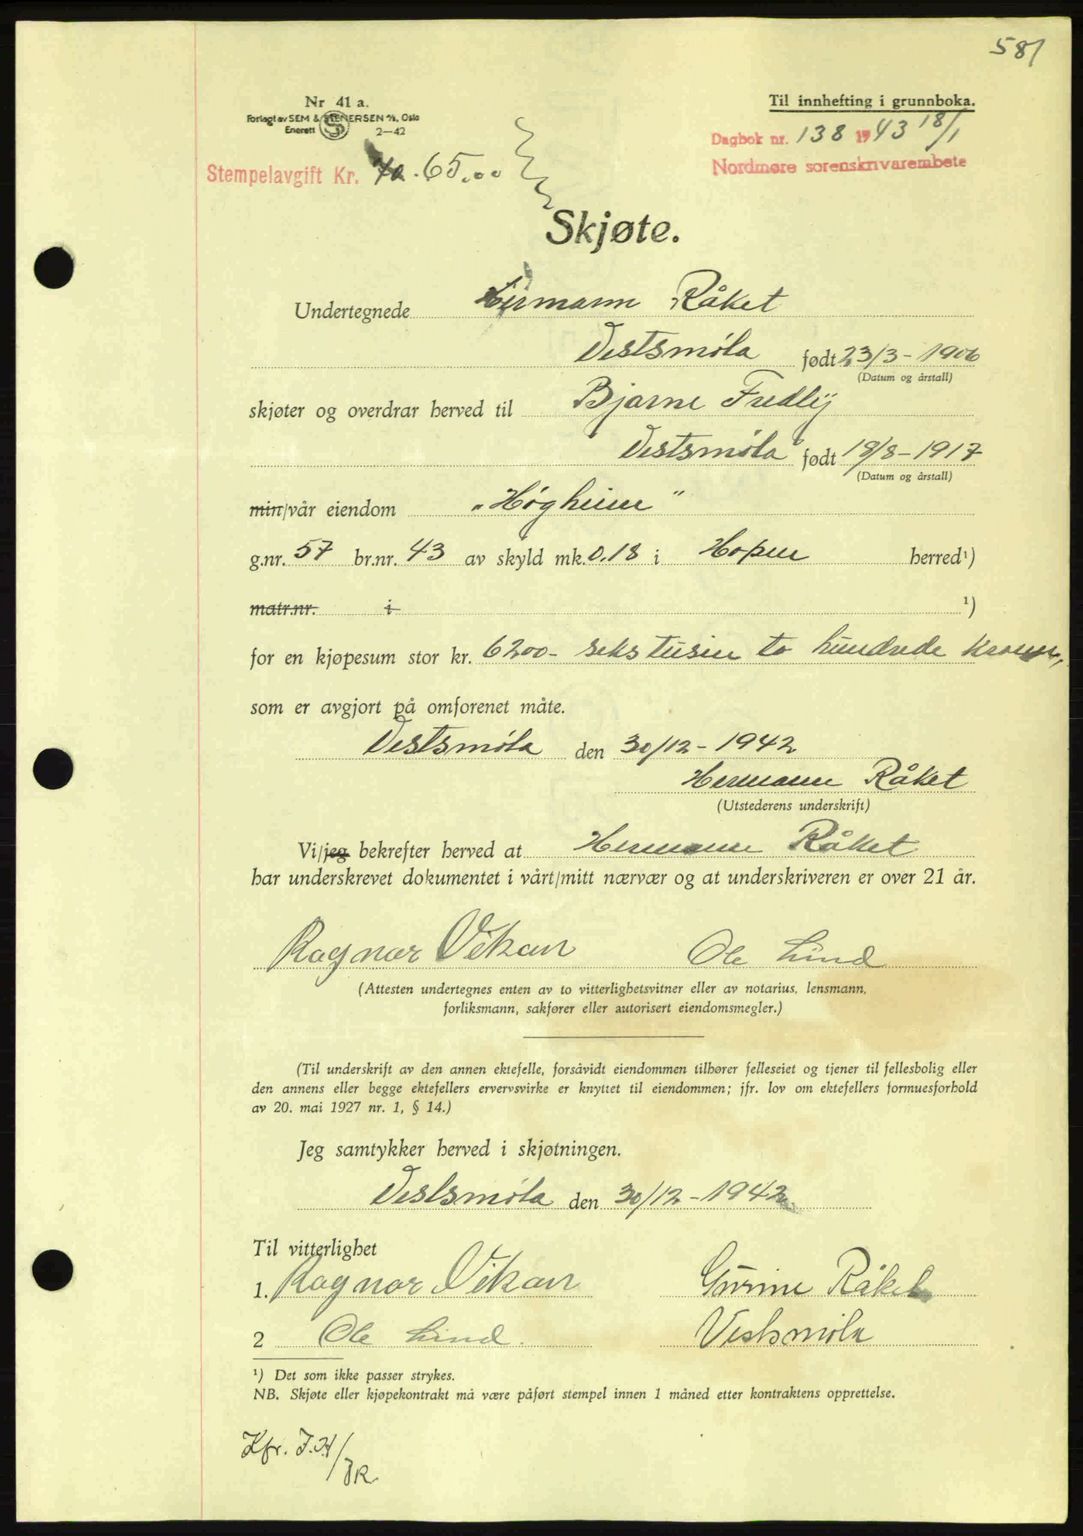 581
Nr 41 a.
Forlagt av SEM & STENERSEN A/S, Oslo
Enerett 2-42
Til innhefting i grunnboka.
Dagbok nr. 138 1943 18/1
Nordmøre sorenskrivarembete
Stempelavgift Kr. 65.00
Skjøte.
Undertegnede Hermann Råket
Vestsmøla født 23/3-1906
(Datum og årstall)
skjøter og overdrar herved til Bjarne Fredly
Vestsmøla født 18/8-1917
(Datum og årstall)
min/vår eiendom "Høgheim"
g.nr. 57 br.nr. 43 av skyld mk. 0.18 i Hopen herred¹)
matr.nr. i ¹)
for en kjøpesum stor kr. 6200- seks tusen to hundrede kroner,
som er avgjort på omforenet måte.
Vestsmøla den 30/12-1942
Hermann Råket
(Utstederens underskrift)
Vi/jeg bekrefter herved at Hermann Råket
har underskrevet dokumentet i vårt/mitt nærvær og at underskriveren er over 21 år.
Ragnar Vikan Ole Lind
(Attesten undertegnes enten av to vitterlighetsvitner eller av notarius, lensmann,
forliksmann, sakfører eller autorisert eiendomsmegler.)
(Til underskrift av den annen ektefelle, forsåvidt eiendommen tilhører felleseiet og tjener til fellesbolig eller
den annens eller begge ektefellers ervervsvirke er knyttet til eiendommen; jfr. lov om ektefellers formuesforhold
av 20. mai 1927 nr. 1, § 14.)
Jeg samtykker herved i skjøtningen.
Vestsmøla den 30/12-1942
Til vitterlighet
1. Ragnar Vikan Gurine Råket
2 Ole Lind. Vestsmøla
¹) Det som ikke passer strykes.
NB. Skjøte eller kjøpekontrakt må være påført stempel innen 1 måned etter kontraktens opprettelse.
Kfr. J.H/JR